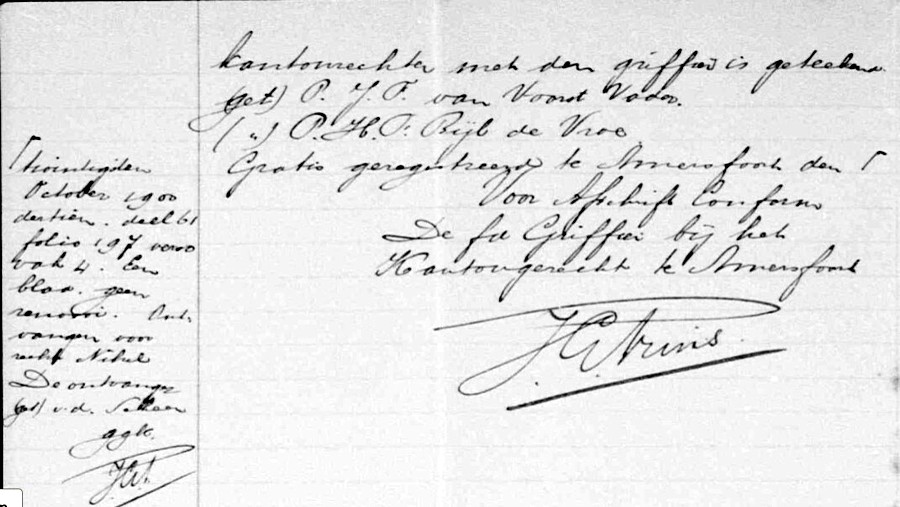 kantonrechter met den griffier is geteekend.
(get) P. J. F. van Voorst Vader.
( „ ) P. H. F. Bijl de Vroe
Gratis geregistreerd te Amersfoort den ⌈
Voor Afschrift Conform
De fd Griffier bij het
Kantongerecht te Amersfoort
⌈ twintigsten
October 1900
dertien. deel 61
folio 197 verso
vak 4. Een
blad. geen
renvooi. Ont-
vangen voor
recht Nihil
De ontvanger
(get) v.d.
ggk.